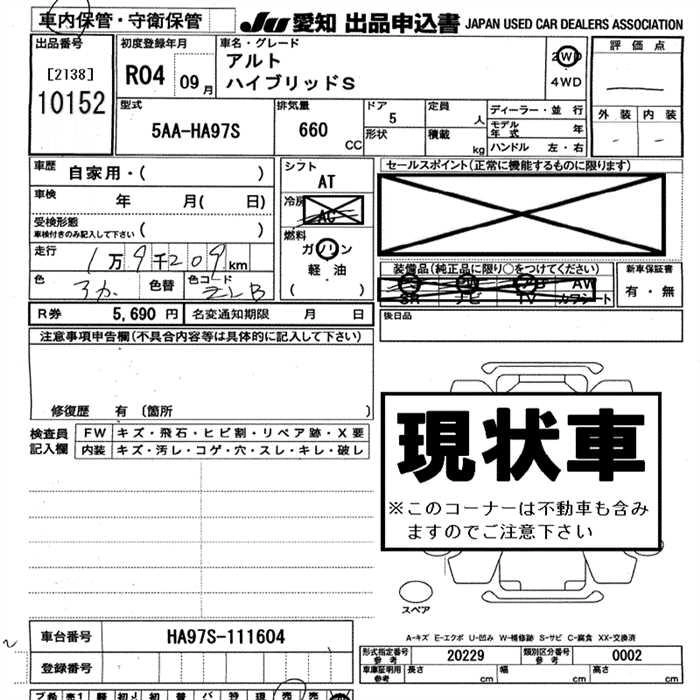 車内保管・守衛保管
JU 愛知 出品申込書 JAPAN USED CAR DEALERS ASSOCIATION
出品番号
[2138]
10152
初度登録年月
R04 09月
車名・グレード
アルト
ハイブリッドS
2WD
4WD
評価点
外装 内装
型式
5AA-HA97S
排気量
660 CC
ドア
5
形状
定員 人
積載 kg
ディーラー・並行
モデル年式 年
ハンドル 左・右
車歴 自家用・( )
車検 年 月( 日)
受検形態
車検付きのみ記入して下さい ( )
走行 1万9千209km
色 色替 色コード ZLB
シフト
AT
冷房
AC
燃料
ガソリン
軽油
( )
セールスポイント(正常に機能するものに限ります)
装備品(純正品に限り○をつけてください)
SR ナビ TV カワシート
AW
新車保証書
有・無
R券 5,690円 名変通知期限 月 日
後日品
注意事項申告欄(不具合内容等は具体的に記入して下さい)
修復歴 有〔箇所 〕
検査員記入欄
FW キズ・飛石・ヒビ割・リペア跡・X要
内装 キズ・汚レ・コゲ・穴・スレ・キレ・破レ
現状車
※このコーナーは不動車も含み
ますのでご注意下さい
スペア
A-キズ E-エクボ U-凹み W-補修跡 S-サビ C-腐食 XX-交換済
車台番号 HA97S-111604
登録番号
型式指定番号 参考 20229 類別区分番号 参考 0002
車庫証明用 参考 長さ cm 幅 cm 高さ cm